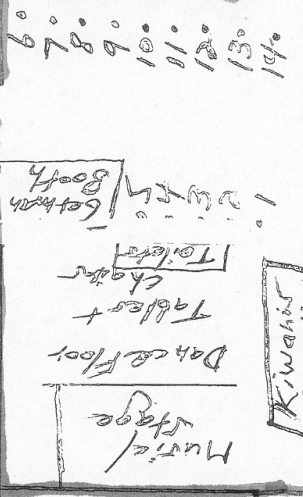 Music/
stage
Dance Floor
Tables +
chairs
Toilets
Kiwanis
1. 2. 3. 4. 5.
German
Booth
14. 13. 12. 11. 10. 9. 8. 7. 6.